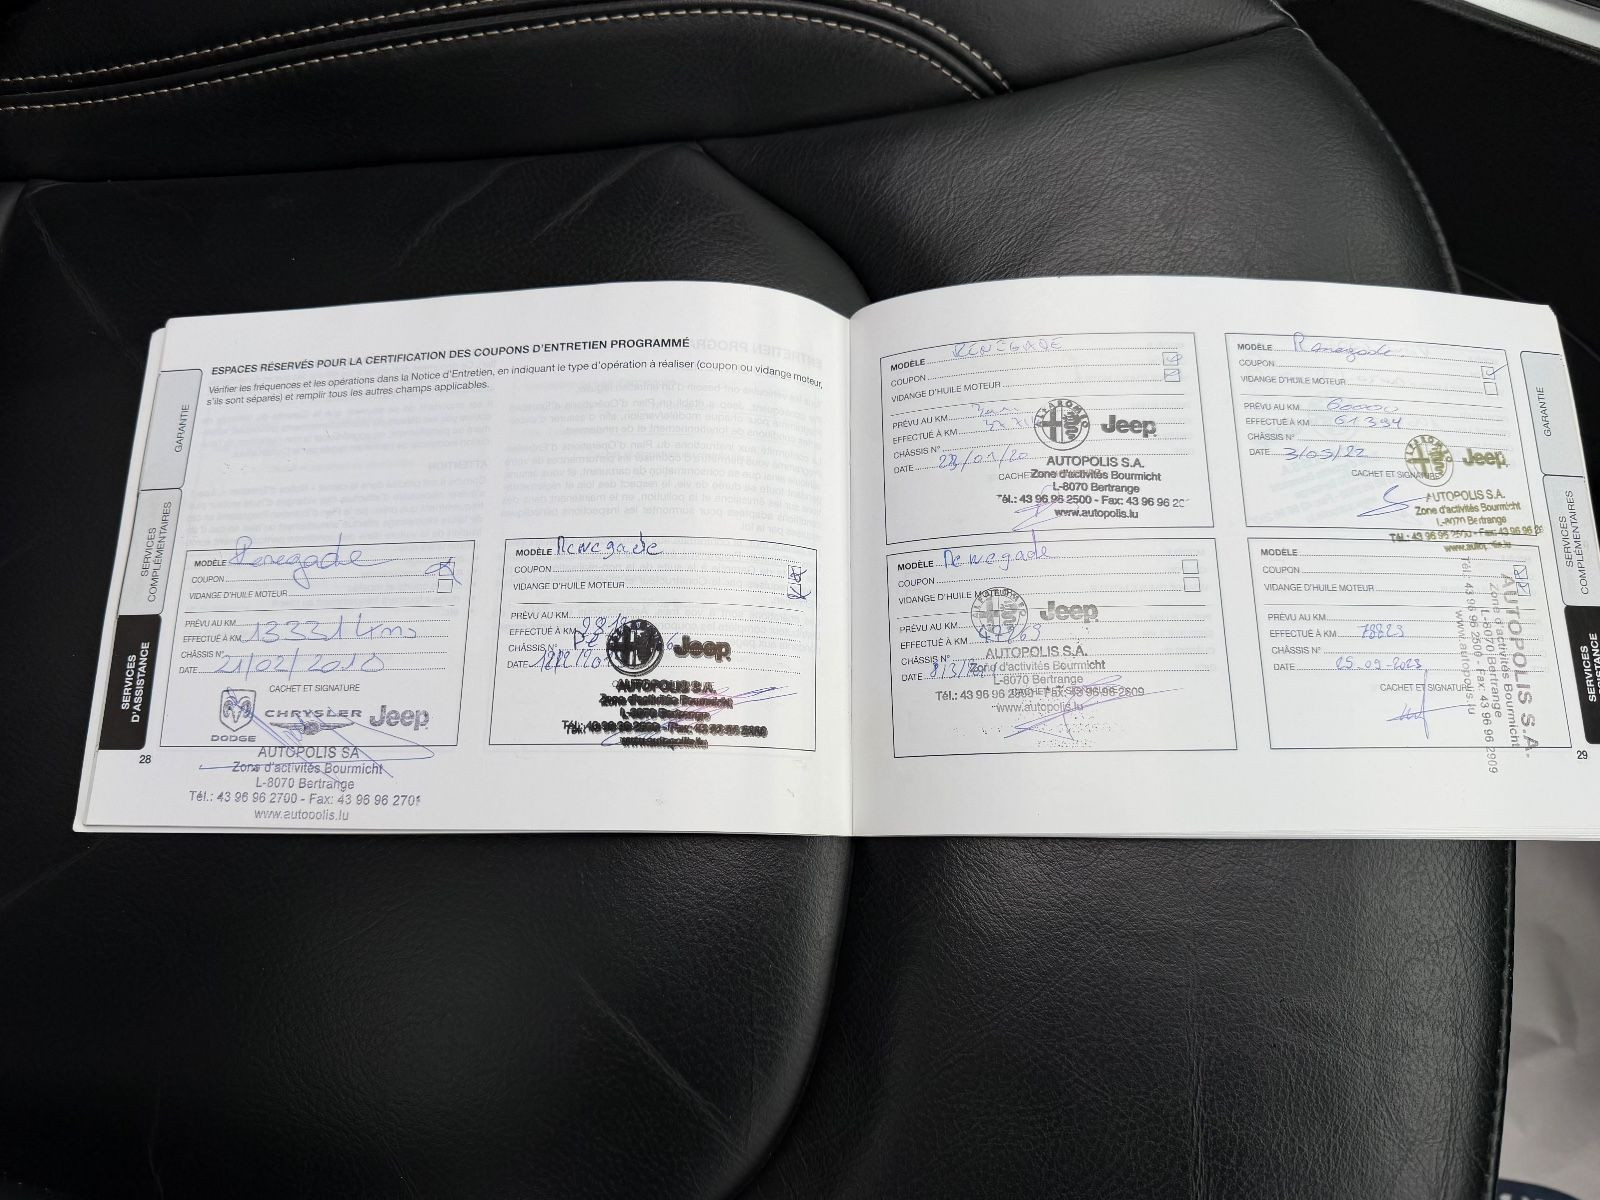 ESPACES RÉSERVÉS POUR LA CERTIFICATION DES COUPONS D'ENTRETIEN PROGRAMMÉ
Vérifier les fréquences et les opérations dans la Notice d'Entretien, en indiquant le type d'opération à réaliser (coupon ou vidange moteur,
s'ils sont séparés) et remplir tous les autres champs applicables.
GARANTIE
SERVICES
COMPLÉMENTAIRES
SERVICES
D'ASSISTANCE
MODÈLE Renegade
COUPON
VIDANGE D'HUILE MOTEUR
PRÉVU AU KM
EFFECTUÉ À KM 13331 kms
CHÂSSIS N°
DATE 21/02/2018
CACHET ET SIGNATURE
DODGE CHRYSLER Jeep
AUTOPOLIS SA
Zone d'activités Bourmicht
L-8070 Bertrange
Tél.: 43 96 96 2700 - Fax: 43 96 96 2701
www.autopolis.lu
28
MODÈLE Renegade
COUPON
VIDANGE D'HUILE MOTEUR
PRÉVU AU KM
EFFECTUÉ À KM
CHÂSSIS N°
DATE
Jeep
AUTOPOLIS S.A.
Zone d'activités Bourmicht
L-8070 Bertrange
www.autopolis.lu
MODÈLE RENEGADE
COUPON
VIDANGE D'HUILE MOTEUR
PRÉVU AU KM
EFFECTUÉ À KM
CHÂSSIS N°
DATE 28/01/20
CACHET
ALFA ROMEO Jeep
AUTOPOLIS S.A.
Zone d'activités Bourmicht
L-8070 Bertrange
Tél.: 43 96 96 2500 - Fax: 43 96 96
www.autopolis.lu
MODÈLE Renegade
COUPON
VIDANGE D'HUILE MOTEUR
PRÉVU AU KM 60000
EFFECTUÉ À KM 61394
CHÂSSIS N°
DATE 3/03/22
CACHET ET SIGNATURE
Jeep
AUTOPOLIS S.A.
Zone d'activités Bourmicht
L-8070 Bertrange
MODÈLE Renegade
COUPON
VIDANGE D'HUILE MOTEUR
PRÉVU AU KM
EFFECTUÉ À KM
CHÂSSIS N°
DATE
Jeep
AUTOPOLIS S.A.
Zone d'activités Bourmicht
L-8070 Bertrange
www.autopolis.lu
MODÈLE
COUPON
VIDANGE D'HUILE MOTEUR
PRÉVU AU KM
EFFECTUÉ À KM 78823
CHÂSSIS N°
DATE 25-09-2023
CACHET ET SIGNATURE
AUTOPOLIS S.A.
Zone d'activités Bourmicht
L-8070 Bertrange
Tél.: 43 96 96 2500 - Fax: 43 96 96 2909
www.autopolis.lu
29
GARANTIE
SERVICES
COMPLÉMENTAIRES
SERVICES